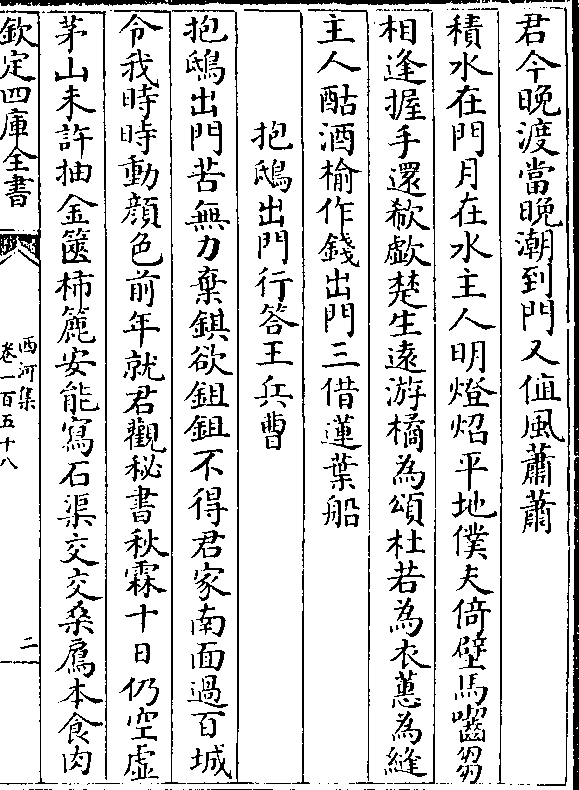 君今晚渡當晚潮到門又值風蕭蕭
積水在門月在水主人明燈炤平地僕夫倚壁馬嚙芻
相逢握手還欷歔楚生遠游橘為頌杜若為衣蕙為縫
主人酤酒榆作錢出門三借蓮葉船
抱鴟出門行答王兵曹
抱鴟出門苦無力棄鎮欲鉏鉏不得君家南面過百城
令我時時動顔色前年就君觀秘書秋霖十日仍空虛
茅山未許抽金篋柿簏安能寫石渠交交桑鳸本食肉
欽定四庫全書
西河集
卷一百五十八
二